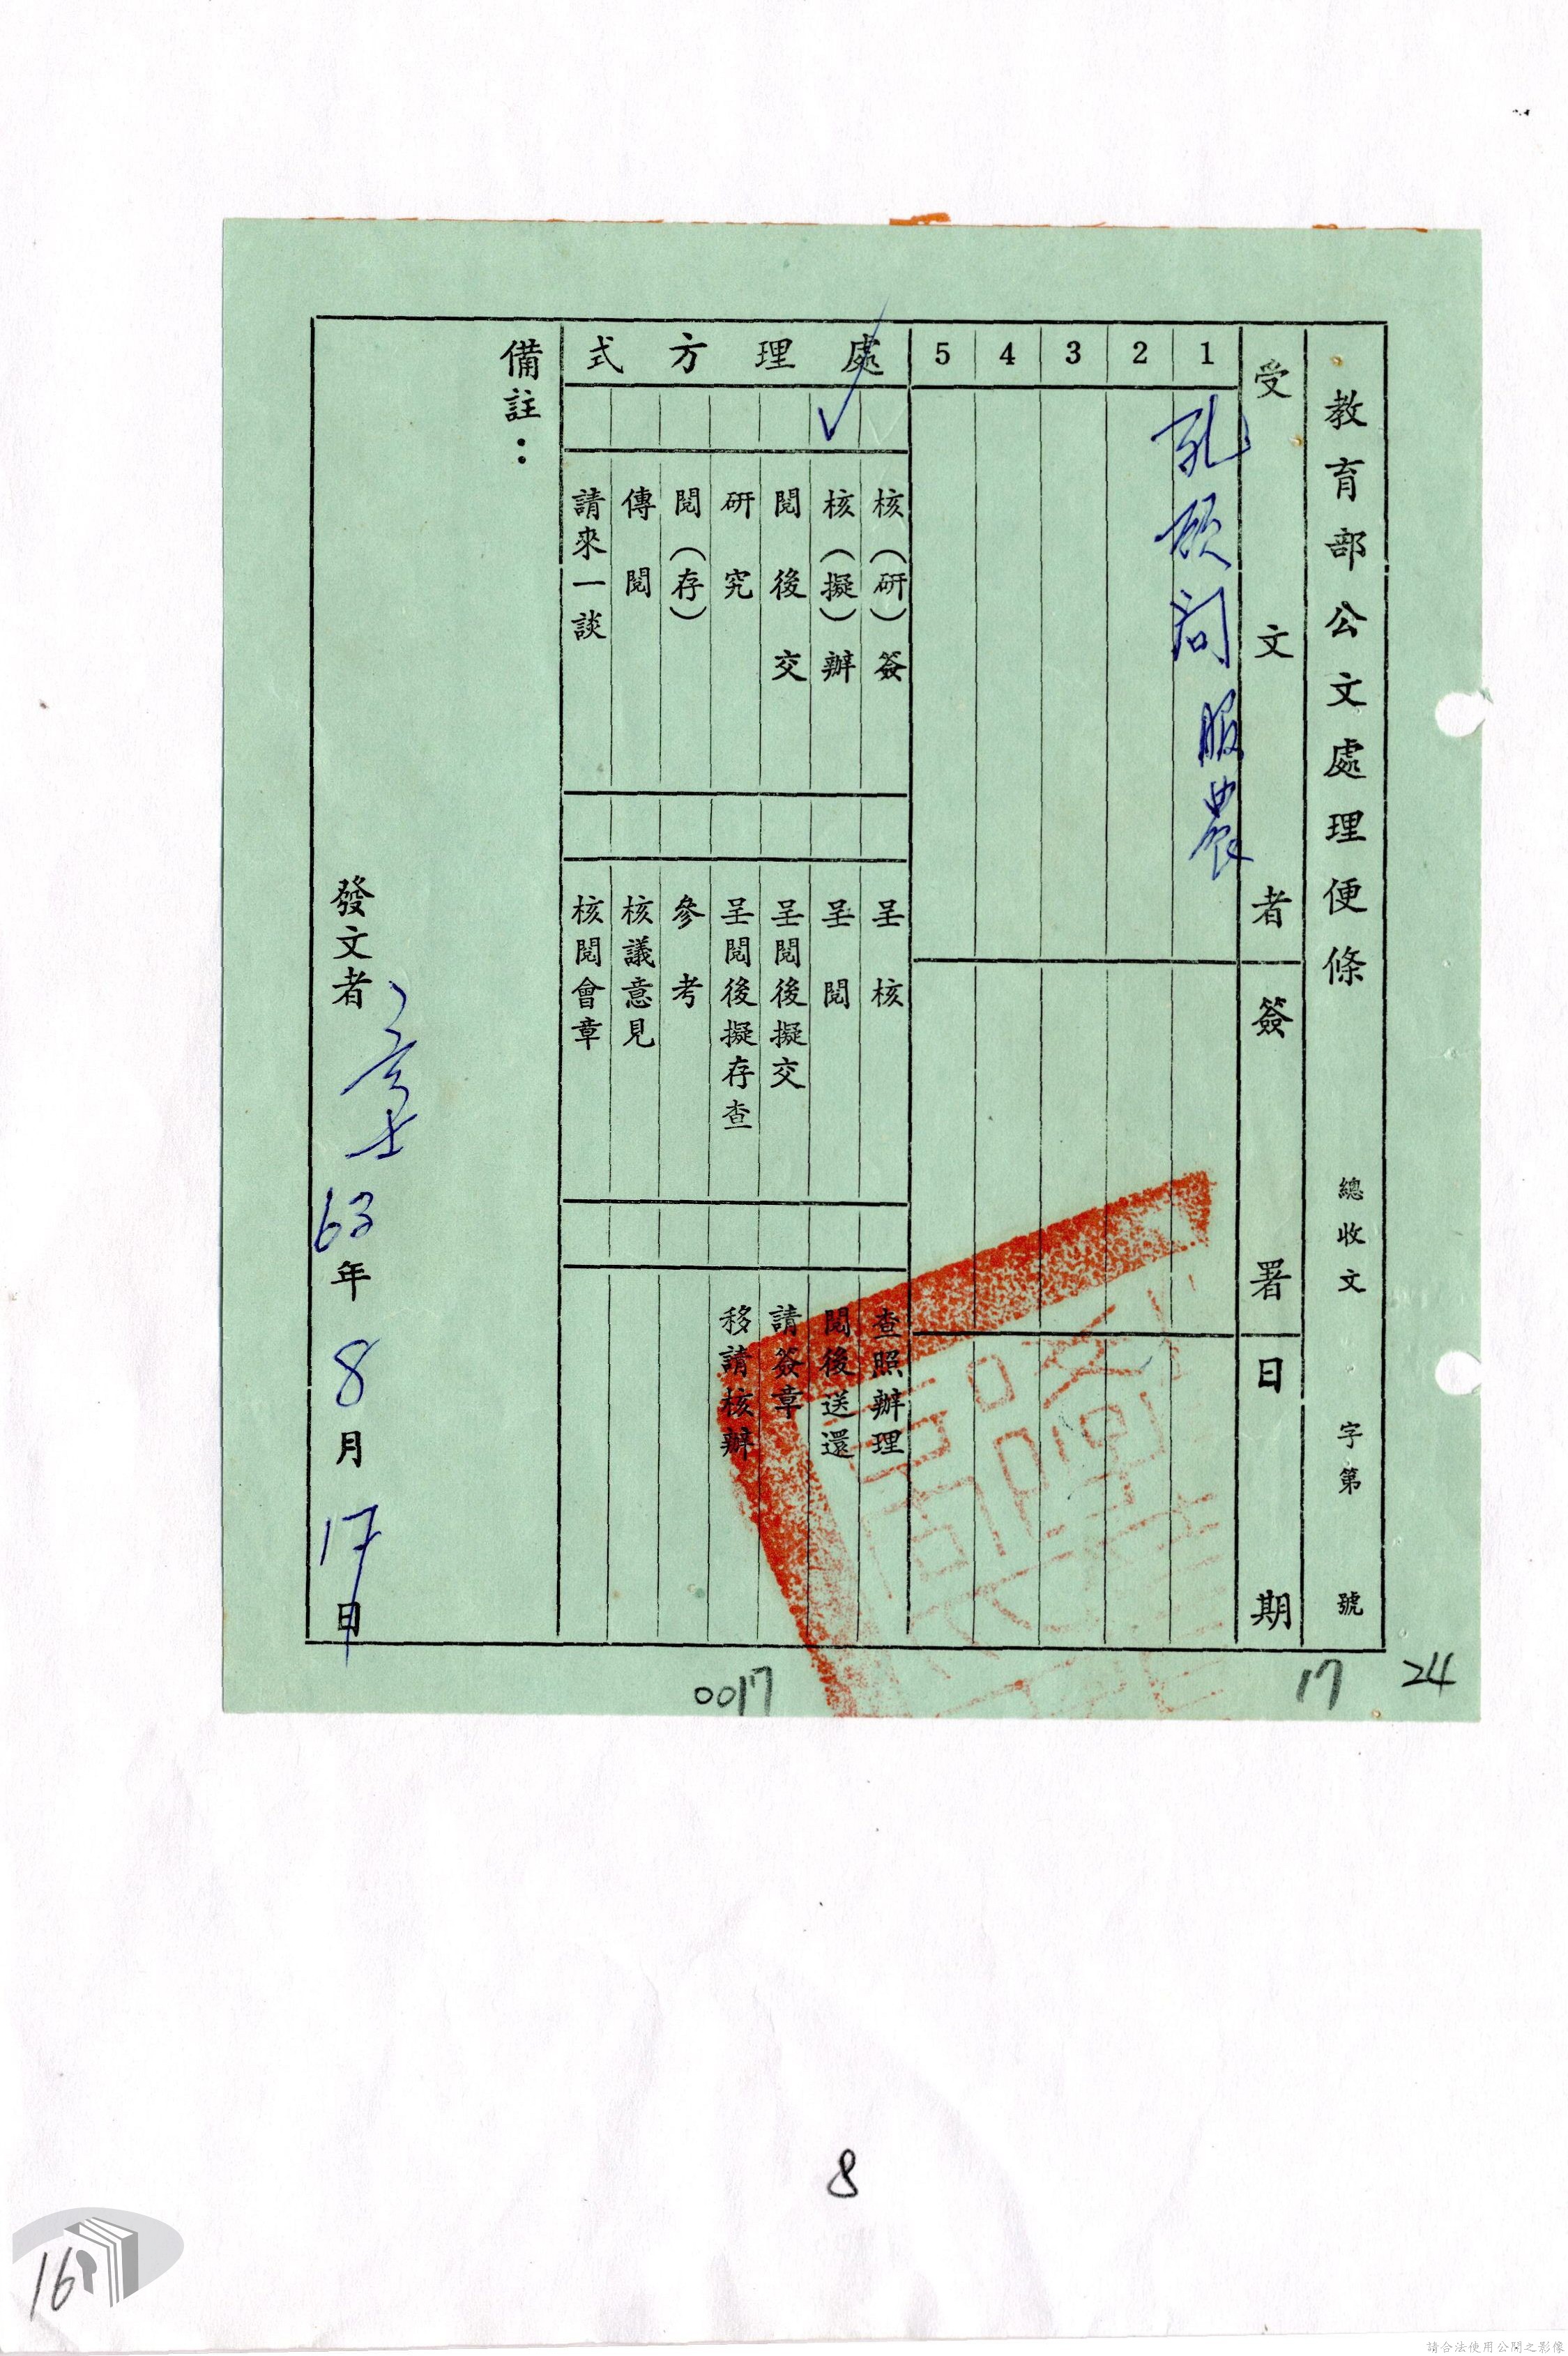 教育部公文處理便條 總收文 字第 號
受文者 簽署 日期
1 孔顧問服農
2
3
4
5
處理方式
核(研)簽 呈核 查照辦理
✓ 核(擬)辦 呈閱 閱後送還
閱後交 呈閱後擬交 請簽章
研究 呈閱後擬存查 移請核辦
閱(存) 參考
傳閱 核議意見
請來一談 核閱會章
備註：
發文者 63年8月17日
0017
17
24
8
16
請合法使用公開之影像